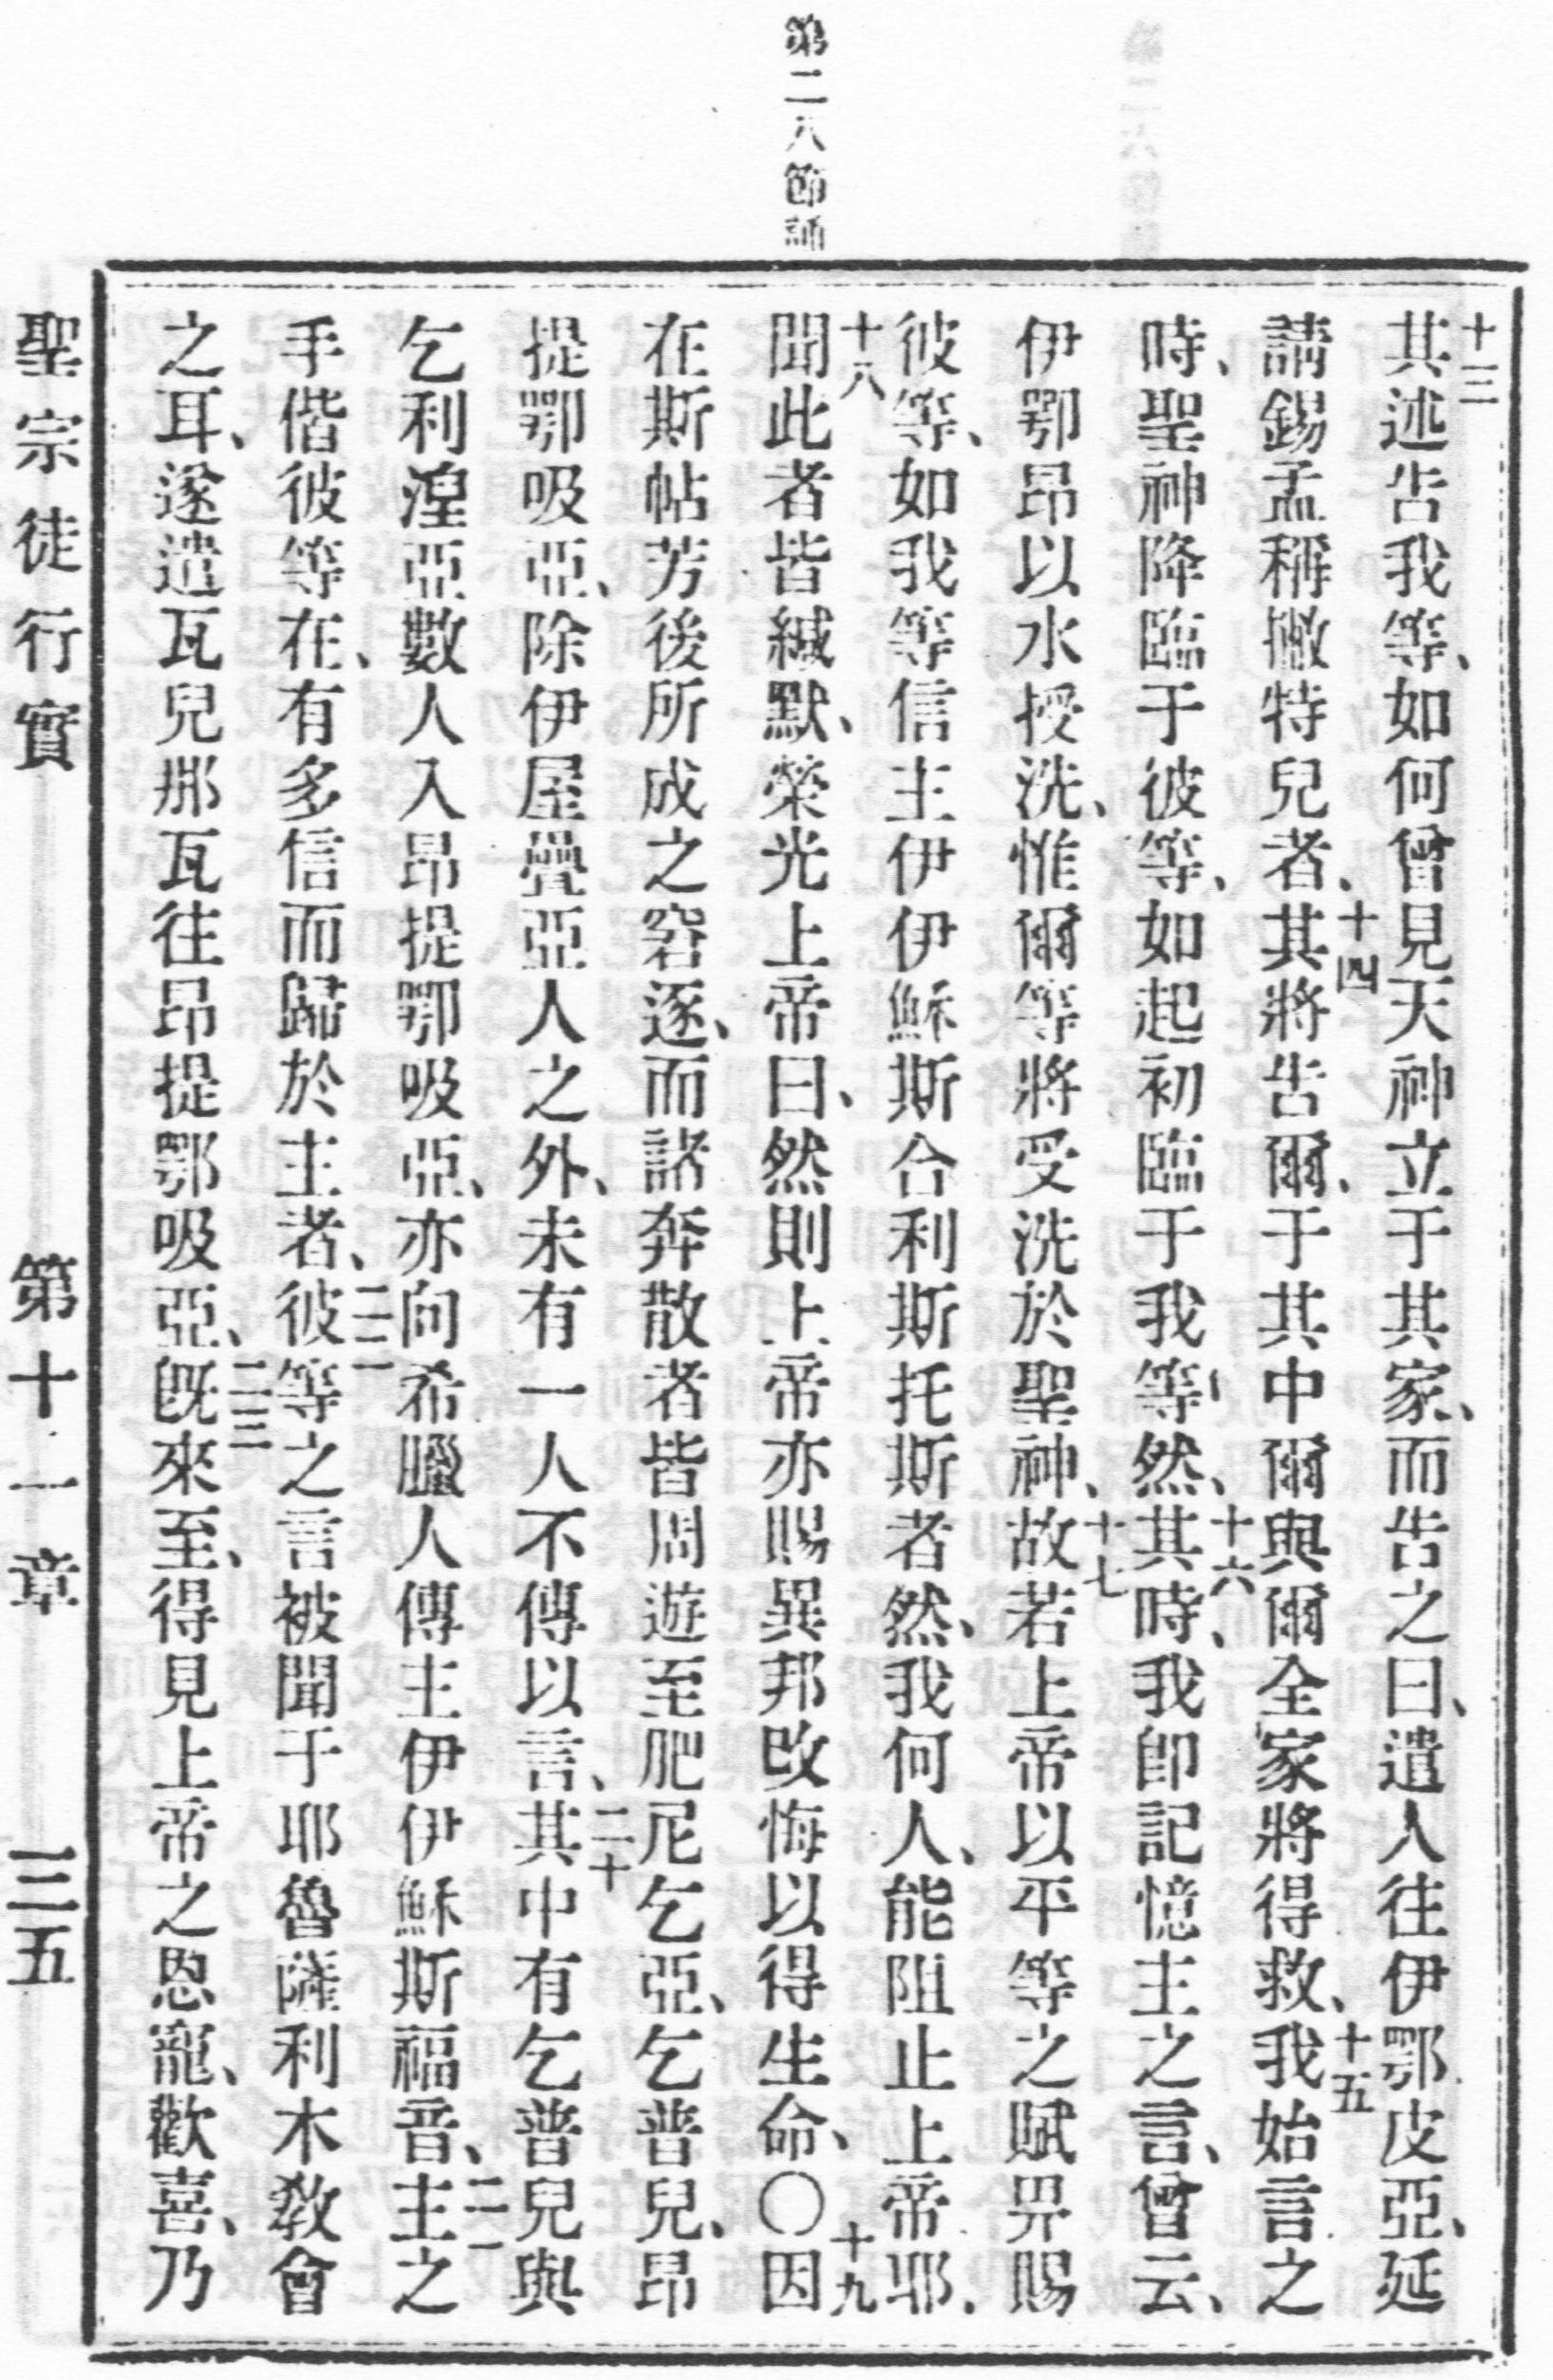 第二八節誦
十三其述告我等、如何曾見天神立于其家、而告之曰、遣人往伊鄂皮亞、延
請錫孟稱撇特兒者、十四其將告爾、于其中爾與爾全家將得救、十五我始言之
時、聖神降臨于彼等、如起初臨于我等然、十六其時、我卽記憶主之言、曾云、
伊鄂昂以水授洗、惟爾等將受洗於聖神、十七故若上帝以平等之賦畀賜
彼等、如我等信主伊伊穌斯合利斯托斯者然、我何人、能阻止上帝耶、
十八聞此者皆緘默、榮光上帝曰、然則上帝亦賜異邦改悔以得生命、〇十九因
在斯帖芳後所成之窘逐、而諸奔散者皆周遊至肥尼乞亞、乞普兒、昂
提鄂吸亞、除伊屋疊亞人之外、未有一人不傳以言、二十其中有乞普兒與
乞利湼亞數人入昂提鄂吸亞、亦向希臘人傳主伊伊穌斯福音、二一主之
手偕彼等在、有多信而歸於主者、二二彼等之言被聞于耶魯薩利木教會
之耳、遂遣瓦兒那瓦往昂提鄂吸亞、二三旣來至、得見上帝之恩寵、歡喜、乃
聖宗徒行實 第十一章 三五